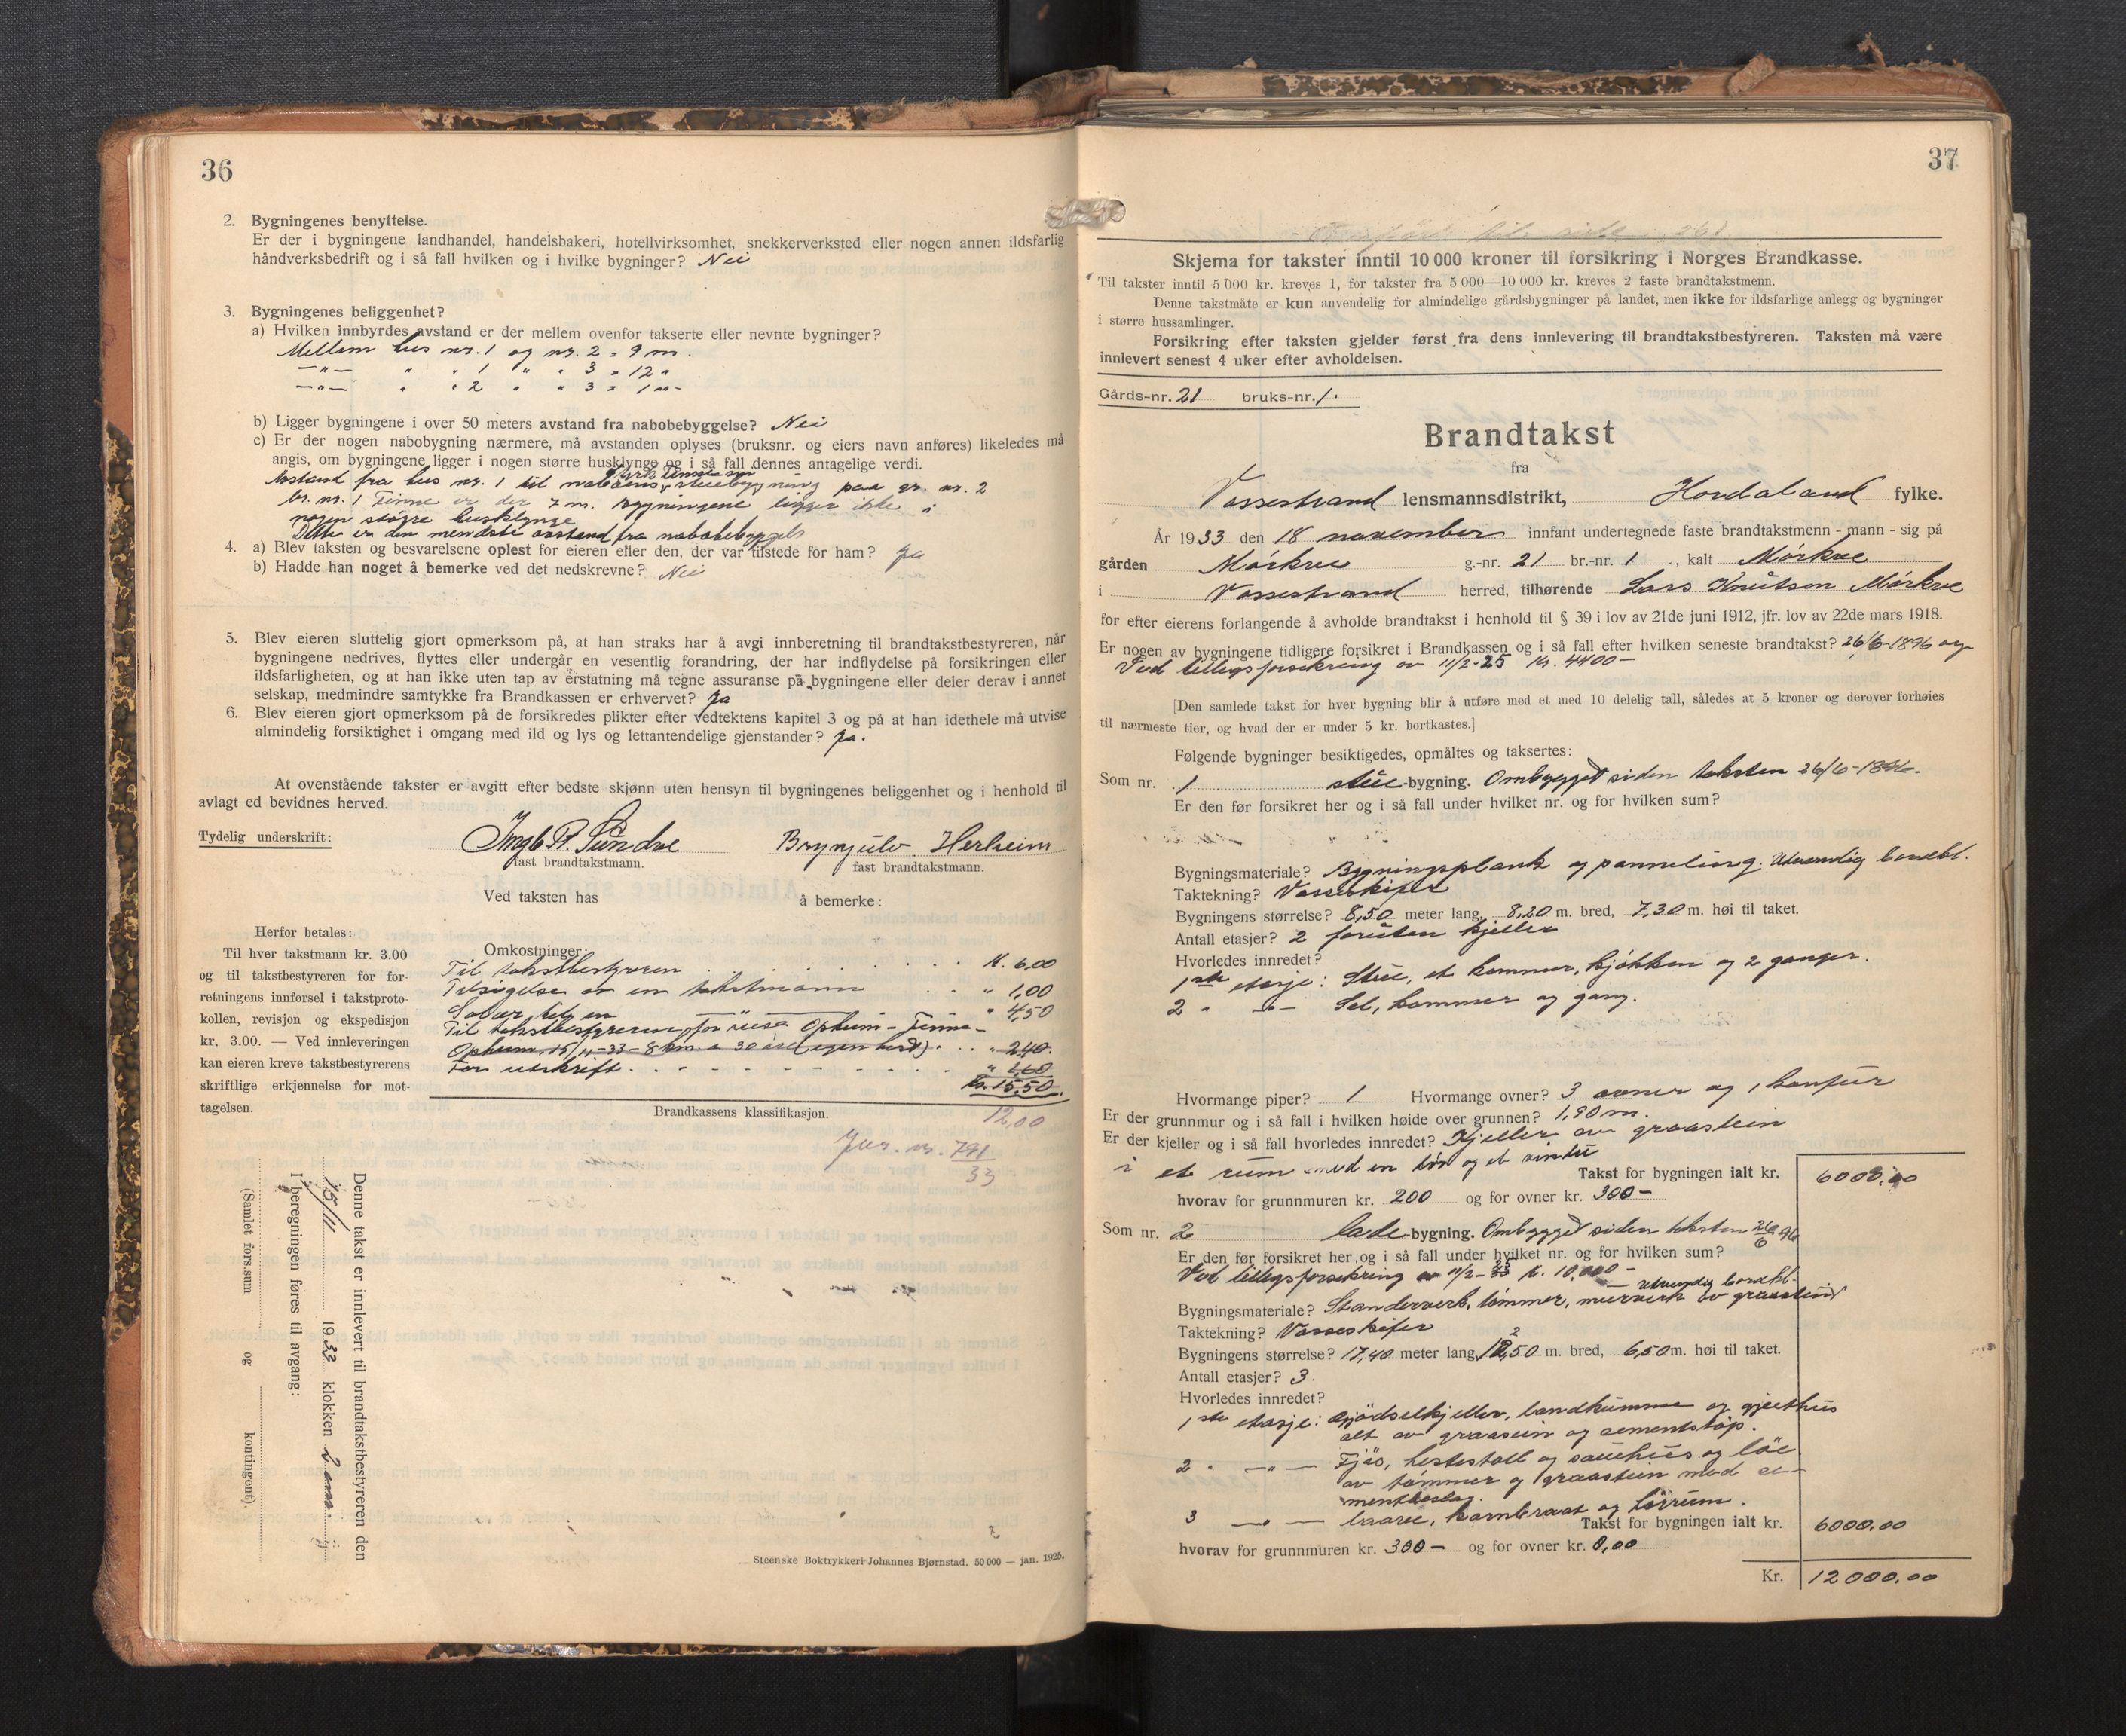 36
2. Bygningenes benyttelse.
Er der i bygningene landhandel, handelsbakeri, hotellvirksomhet, snekkerverksted eller nogen annen ildsfarlig
håndverksbedrift og i så fall hvilken og i hvilke bygninger? Nei
3. Bygningenes beliggenhet?
a) Hvilken innbyrdes avstand er der mellem ovenfor takserte eller nevnte bygninger?
Mellem hus nr. 1 og nr. 2 = 9 m.
—"— " " 1 " " 3 = 12 "
—"— " " 2 " " 3 = 1 m-
b) Ligger bygningene i over 50 meters avstand fra nabobebyggelse? Nei
c) Er der nogen nabobygning nærmere, må avstanden oplyses (bruksnr. og eiers navn anføres) likeledes må
angis, om bygningene ligger i nogen større husklynge og i så fall dennes antagelige verdi.
Avstand fra hus nr. 1 til naboens stuebygning paa gr. nr. 2
br. nr. 1 Finne er der 7 m. Bygningene ligger ikke i
nogen større husklynge
Dette er den mindste avstand fra nabobebyggels
4. a) Blev taksten og besvarelsene oplest for eieren eller den, der var tilstede for ham? Ja
b) Hadde han noget å bemerke ved det nedskrevne? Nei
5. Blev eieren sluttelig gjort opmerksom på, at han straks har å avgi innberetning til brandtakstbestyreren, når
bygningene nedrives, flyttes eller undergår en vesentlig forandring, der har indflydelse på forsikringen eller
ildsfarligheten, og at han ikke uten tap av erstatning må tegne assuranse på bygningene eller deler derav i annet
selskap, medmindre samtykke fra Brandkassen er erhvervet? Ja
6. Blev eieren gjort opmerksom på de forsikredes plikter efter vedtektens kapitel 3 og på at han idethele må utvise
almindelig forsiktighet i omgang med ild og lys og lettantendelige gjenstander? Ja.
At ovenstående takster er avgitt efter bedste skjønn uten hensyn til bygningenes beliggenhet og i henhold til
avlagt ed bevidnes herved.
Tydelig underskrift:
Ingb. P. Sundve Brynjulv Herheim
fast brandtakstmann. fast brandtakstmann.
Ved taksten has å bemerke:
Herfor betales:
Til hver takstmann kr. 3.00
og til takstbestyreren for for-
retningens innførsel i takstproto-
kollen, revisjon og ekspedisjon
kr. 3.00. — Ved innleveringen
kan eieren kreve takstbestyrerens
skriftlige erkjennelse for mot-
tagelsen.
Omkostninger:
Til takstbestyreren . . . . . . . . K. 6,00
Tilsigelse av en takstmann . . " 1,00
" 4,50
Til takstbestyreren for reise Opheim - Finne -
Opheim 15/11-33 - 8 km. a 30 øre (egen hest) . . . " 2,40.
For utskrift . . . . . . . . . " 1,60
Kr. 15,50.
12,00
Brandkassens klassifikasjon.
Jur. nr. 791/33
Denne takst er innlevert til brandtakstbestyreren den
15/11 1933 klokken 2 em.
I beregningen føres til avgang:
(Samlet fors.sum og kontingent).
Steenske Boktrykkeri Johannes Bjørnstad. 50 000 — jan. 1925.
37
til side 261
Skjema for takster inntil 10 000 kroner til forsikring i Norges Brandkasse.
Til takster inntil 5 000 kr. kreves 1, for takster fra 5 000—10 000 kr. kreves 2 faste brandtakstmenn.
Denne takstmåte er kun anvendelig for almindelige gårdsbygninger på landet, men ikke for ildsfarlige anlegg og bygninger
i større hussamlinger.
Forsikring efter taksten gjelder først fra dens innlevering til brandtakstbestyreren. Taksten må være
innlevert senest 4 uker efter avholdelsen.
Gårds-nr. 21 bruks-nr. 1.
Brandtakst
fra
Vossestrand lensmannsdistrikt, Hordaland fylke.
År 1933 den 18 november innfant undertegnede faste brandtakstmenn - mann - sig på
gården Mørkve g.-nr. 21 br.-nr. 1 , kalt Mørkve
i Vossestrand herred, tilhørende Lars Knutson Mørkve
for efter eierens forlangende å avholde brandtakst i henhold til § 39 i lov av 21de juni 1912, jfr. lov av 22de mars 1918.
Er nogen av bygningene tidligere forsikret i Brandkassen og i så fall efter hvilken seneste brandtakst? 26/6-1896 og
Ved tillegsforsikring av 11/2-25 kr. 4400-
[Den samlede takst for hver bygning blir å utføre med et med 10 delelig tall, således at 5 kroner og derover forhøies
til nærmeste tier, og hvad der er under 5 kr. bortkastes.]
Følgende bygninger besiktigedes, opmåltes og taksertes:
Som nr. 1 stue-bygning. Ombygget siden taksten 26/6-1896.
Er den før forsikret her og i så fall under hvilket nr. og for hvilken sum?
Bygningsmateriale? Bygningsplank og panneling. Utvendig bordkl.
Taktekning? Vosseskifer
Bygningens størrelse? 8,50 meter lang, 8,20 m. bred, 7,30 m. høi til taket.
Antall etasjer? 2 foruten kjeller
Hvorledes innredet?
1ste etasje: Stue, et kammer, kjøkken og 2 ganger.
2 " —"— Sel, kammer og gang.
Hvormange piper? 1 Hvormange ovner? 3 ovner og 1 komfur
Er der grunnmur og i så fall i hvilken høide over grunnen? 1,90 m.
Er der kjeller og i så fall hvorledes innredet? Kjeller av graastein
i et rum med en dør og et vindu
Takst for bygningen ialt kr. 6000,00
hvorav for grunnmuren kr. 200 og for ovner kr. 300-
Som nr. 2 løde-bygning. Ombygget siden taksten 26/6 96
Er den før forsikret her og i så fall under hvilket nr. og for hvilken sum?
Ved tillegsforsikring av 11/2-25 k. 10,000 -
— utvendig bordkl.
Bygningsmateriale? Standerverk, tømmer, murverk av graastein
Taktekning? Vosseskifer
Bygningens størrelse? 17,40 meter lang, 12,50 m. bred, 6,50 m. høi til taket.
Antall etasjer? 3.
Hvorledes innredet?
1ste etasje: Gjødselkjeller, landkumme og gjeithus
alt av graastein og cementstøp.
2 " —"— Fjøs, hestestall og sauehus og løe
av tømmer og graastein med ce-
mentbeslag.
3 —"— laave, og tørrum.
Takst for bygningen ialt kr. 6000,00
hvorav for grunnmuren kr. 300- og for ovner kr. 0,00
Kr. 12000,00